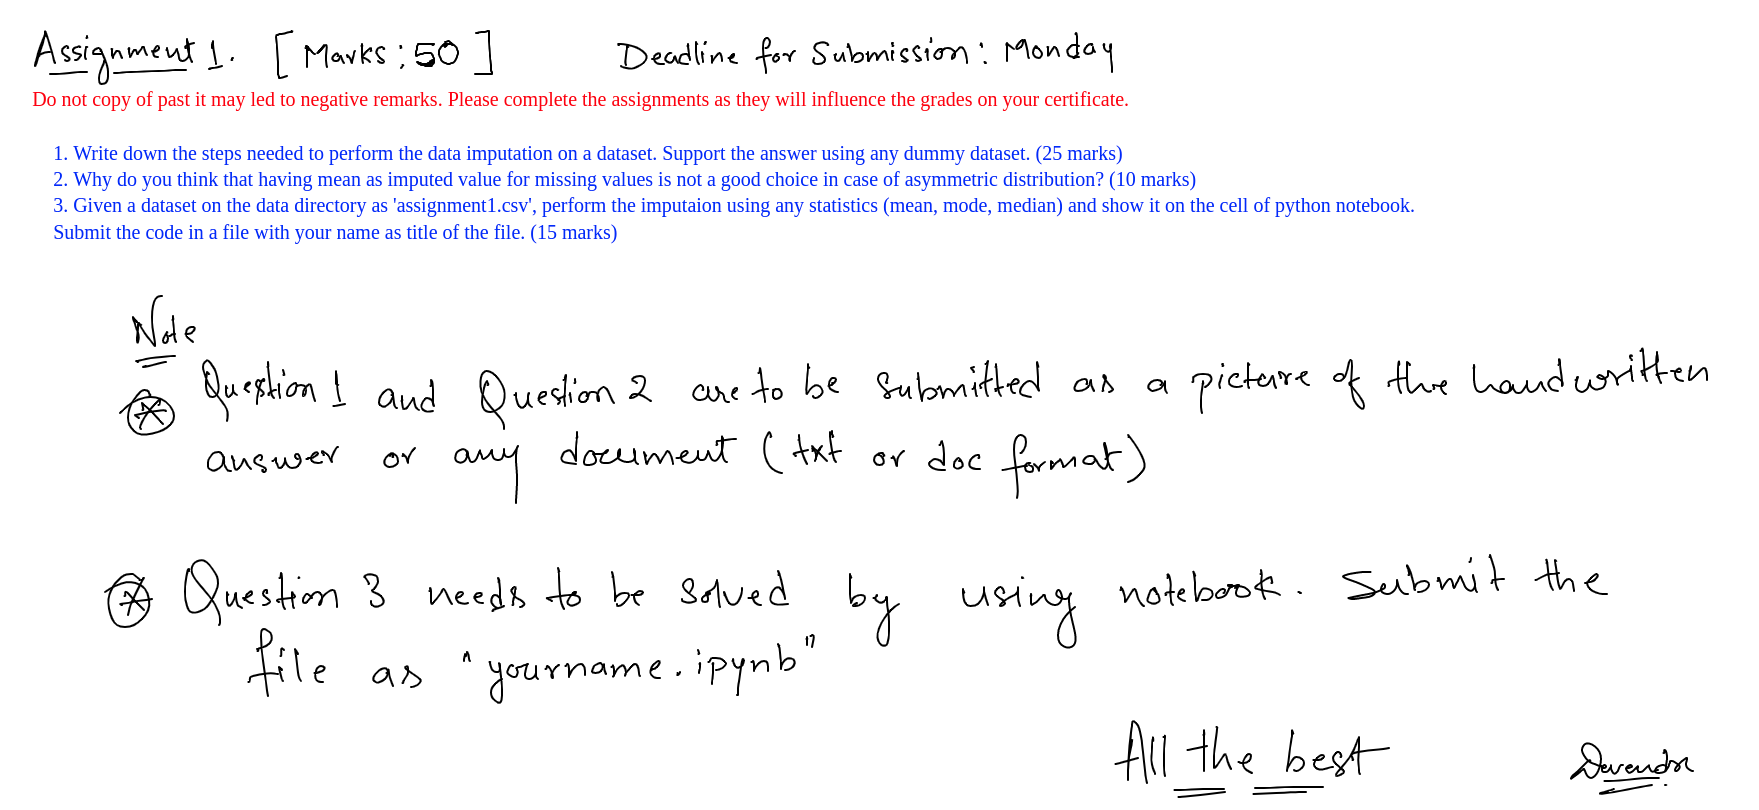 Assignment 1. [Marks: 50] Deadline for Submission: Monday
Do not copy of past it may led to negative remarks. Please complete the assignments as they will influence the grades on your certificate.
1. Write down the steps needed to perform the data imputation on a dataset. Support the answer using any dummy dataset. (25 marks)
2. Why do you think that having mean as imputed value for missing values is not a good choice in case of asymmetric distribution? (10 marks)
3. Given a dataset on the data directory as 'assignment1.csv', perform the imputaion using any statistics (mean, mode, median) and show it on the cell of python notebook.
Submit the code in a file with your name as title of the file. (15 marks)
Note
* Question 1 and Question 2 are to be submitted as a picture of the handwritten
answer or any document (txt or doc format)
* Question 3 needs to be solved by using notebook. Submit the
file as "yourname.ipynb"
All the best Devendra